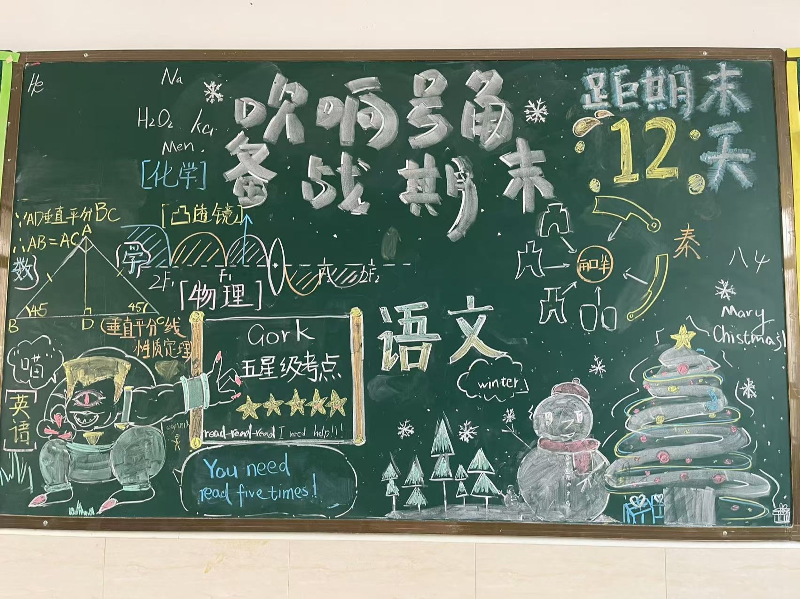 He
Na
H2O2
Men
[化学]
吹响号角
备战期末
距期末
12
天
∵AD垂直平分BC
∴AB=AC
A
数
学
45
45
B
D
C
(垂直平分线
性质定理)
[凸透镜]
2F1
F1
2F2
[物理]
秦
八4
语文
喵
英语
Gork
五星级考点
read-read-read I need help!!!
You need
read five times!
winter
Mary
Chistmas!